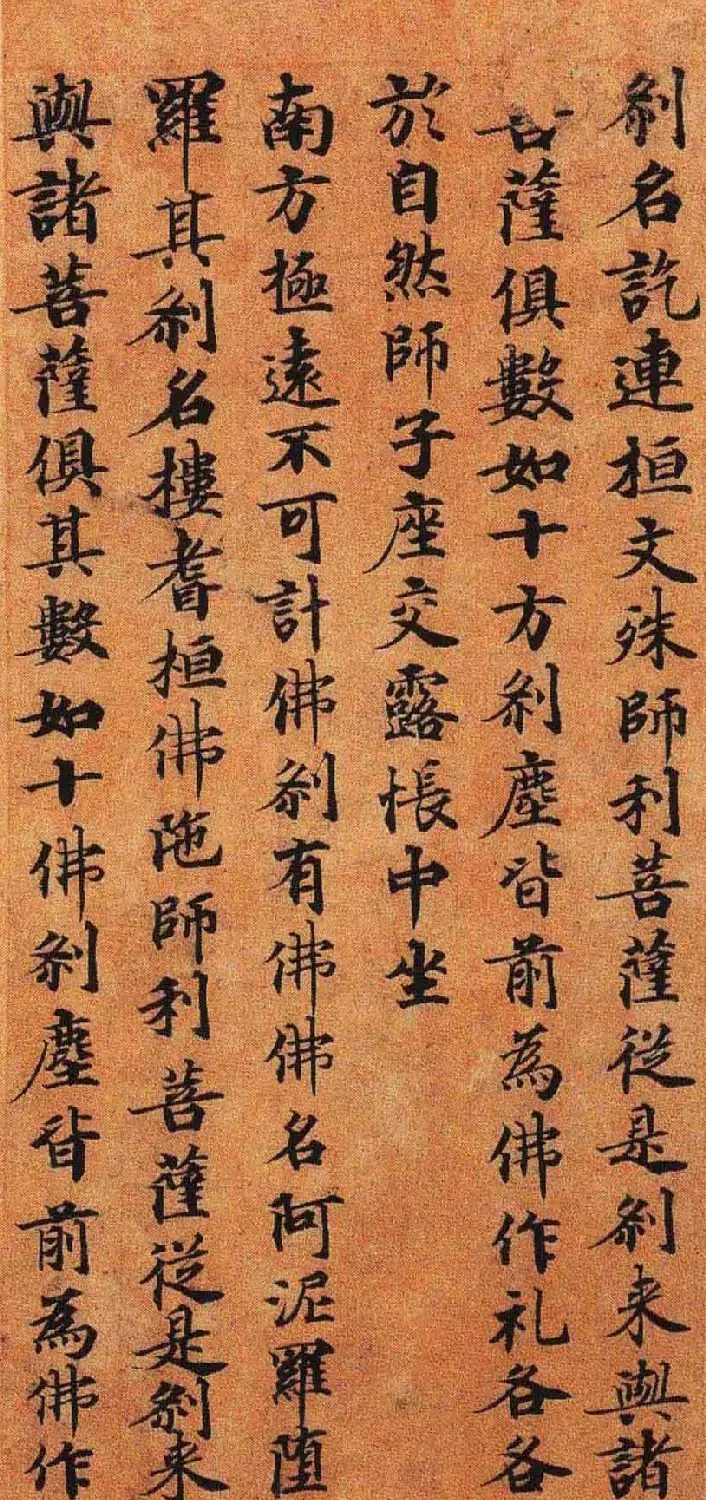 刹名訖連桓文殊師利菩薩從是刹来與諸
菩薩俱數如十方刹塵皆前為佛作礼各各
於自然師子座交露帳中坐
南方極遠不可計佛刹有佛佛名阿泥羅墮
羅其刹名樓耆桓佛陁師利菩薩從是刹来
與諸菩薩俱其數如十佛刹塵皆前為佛作